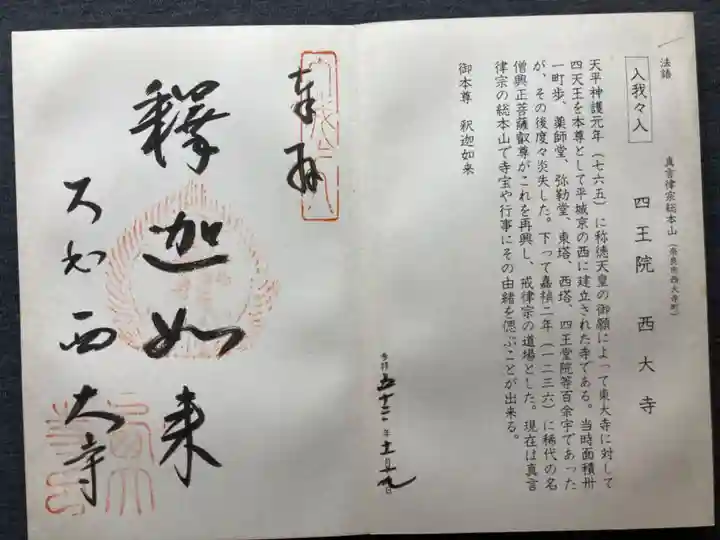 法語
入我々入
真言律宗総本山（奈良市西大寺町）
四王院　西大寺
天平神護元年（七六五）に称徳天皇の御願によって東大寺に対して
四天王を本尊として平城京の西に建立された寺である。当時面積卅
一町歩、薬師堂、弥勒堂、東塔、西塔、四王堂院等百余宇であった
が、その後度々炎失した。下って嘉禎二年（一二三六）に稀代の名
僧興正菩薩叡尊がこれを再興し、戒律宗の道場とした。現在は真言
律宗の総本山で寺宝や行事にその由緒を偲ぶことが出来る。
御本尊　釈迦如来
奉拝
釋迦如来
西大寺